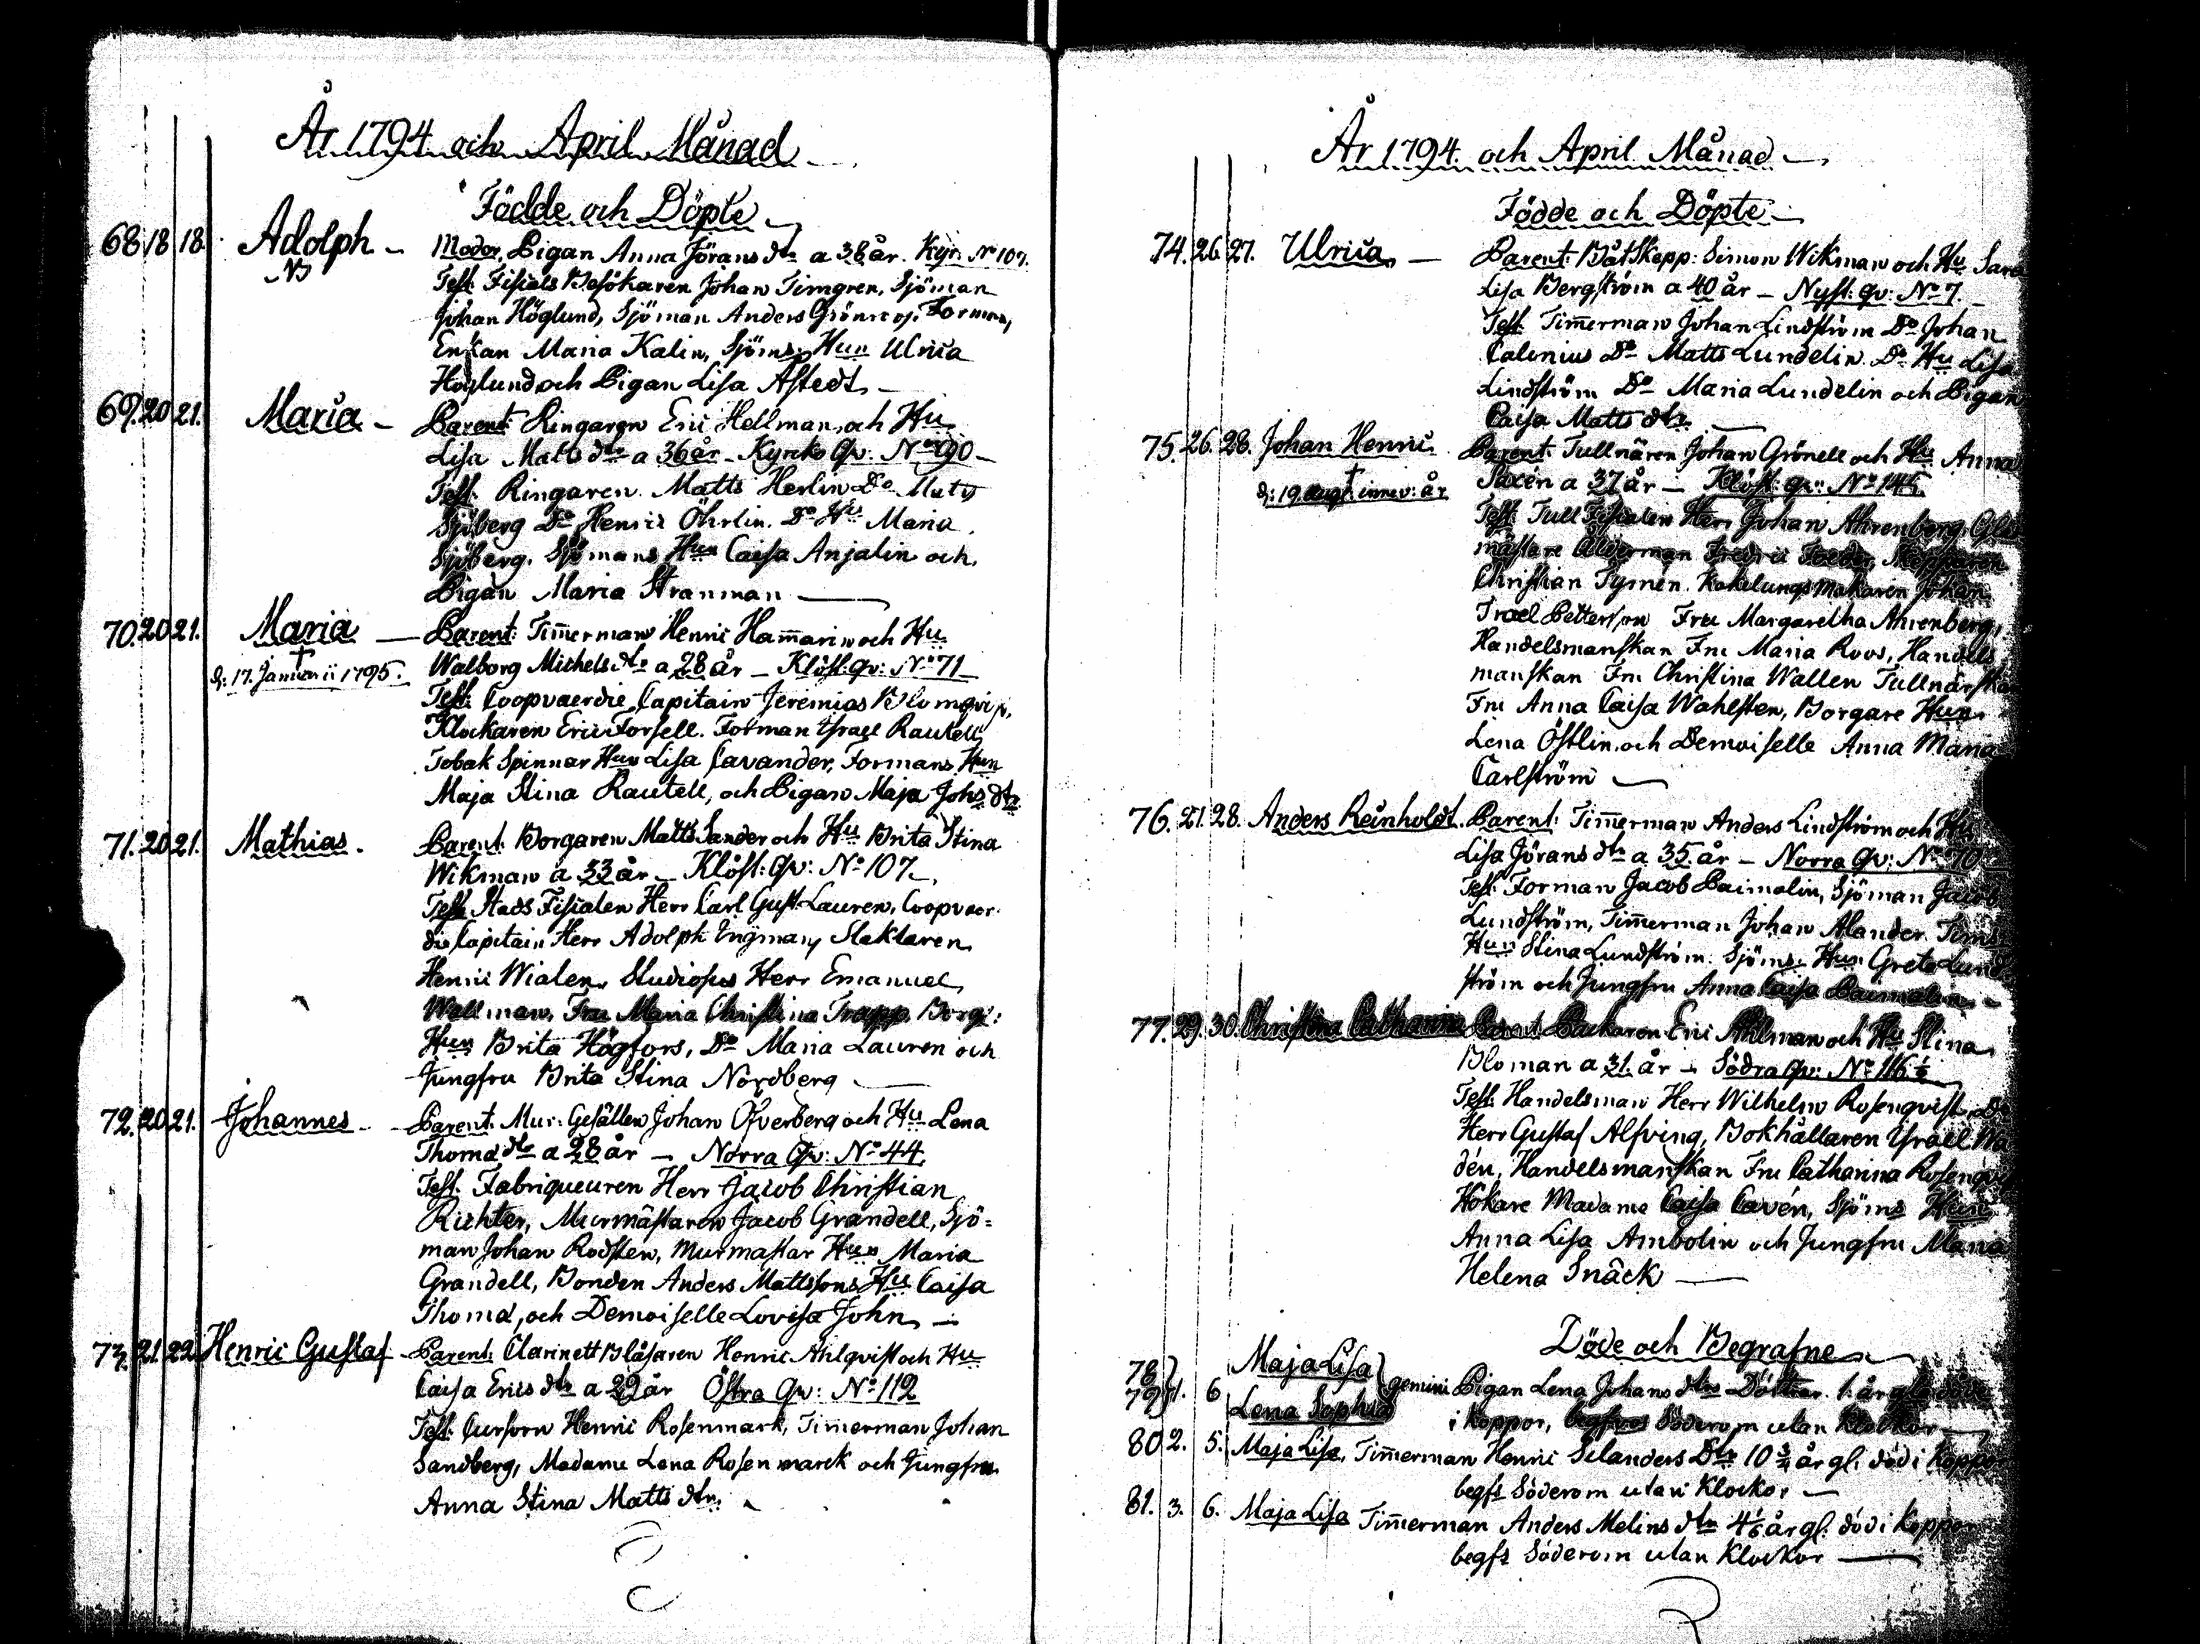 År 1794 och April Månad
Födde och Döpte
68. 18 18. Adolph – Moder, Pigan Anna Jörans dtr a 38 år. Kyr. No 107.
NB Test. Fiscals Besökaren Johan Timgren, Sjöman
Johan Höglund, Sjöman Anders Grönroos, Forman,
Enkan Maria Kalin, Sjöms: Hun Ulrica
Höglund och Pigan Lisa Åstedt –
69. 20 21. Maria – Parent: Ringaren Eric Hellman och Hu
Lisa Matts dtr a 36 år – Kyrcko Qv: No 90 –
Test: Ringaren Matts Herlin Do Matts
Sjöberg Do Henric Öhrlin. Do Hu Maria
Sjöberg. Sjömans Hun Caisa Anjalin och
Pigan Maria Stranman —
70. 20 21. Maria — Parent: Tim̄erman Henric Ham̄arin och Hu
† d: 17. Januarii 1795. Walborg Michels dtr a 28 år – Klöst. qv: No 71 –
Test: Coopvaerdie Capitain Jeremias Blomqvist,
Klockaren Eric Forsell. Forman Israel Rautell
Tobak Spinnar Hun Lisa Cavander, Formans Hun
Maja Stina Rautell, och Pigan Maja Johs dtr
71. 20 21. Mathias. Parent: Borgaren Matts Sander och Hu Brita Stina
Wikman a 33 år – Klöst: qv: No 107.
Test: Stads Fiscalen Herr Carl Gust. Lauren, Coopvaer-
die Capitain Herr Adolph Engman, Slaktaren
Henric Wialen, Studiosus Herr Emanuel
Wallman, Fru Maria Christina Trapp. Borg:
Hun Brita Högfors, Do Maria Lauren och
Jungfru Brita Stina Nordberg —
72. 20 21. Johannes – Parent. Mur: Gesällen Johan Öfverberg och Hu Lena
Thoma dtr a 28 år – Norra Qv: No 44.
Test: Fabriqueuren Herr Jacob Christian
Richter, Murmästaren Jacob Grandell, Sjö=
man Johan Rodsten, Murmästar Hun Maria
Grandell, Bonden Anders Mattssons Hu Caisa
Thoma, och Demoiselle Lovisa John –
73. 21. 22. Henric Gustaf – Parent: Clarinett Blåsaren Henric Ahlqvist och Hu
Caisa Erics dtr a 29 år Östra Qv: No 112
Test: Cursorn Henric Rosenmark, Tim̄erman Johan
Sandberg, Madame Lena Rosenmarck och Jungfru
Anna Stina Matts dtr.
År 1794. och April Månad –
Födde och Döpte –
74. 26. 27. Ulrica – Parent: BåtSkepp: Simon Wikman och Hu Sara
Lisa Bergström a 40 år – Nyst: qv: No 7. –
Test: Tim̄erman Johan Lindström Do Johan
Calenius Do Matts Lundelin Do Hu Lisa
Lindström Do Maria Lundelin och Pigan
Caisa Matts dtr. —
75. 26. 28. Johan Henric Parent: Tullnären Johan Grönell och Hu Anna
† d: 19. Aug: innev: år Saxén a 37 år – Klöst: qv: No 145
Test: Tull Fiscalen Herr Johan Ahrenberg, Glas
mästare Ålderman Fredric Skepparen
Christian Tymén. Kakelungsmakaren Johan
Israel Pettersson Fru Margaretha Ahrenberg,
Handelsmanskan Fru Maria Roos, Handels
manskan Fru Christina Wallen Tullnärskan
Fru Anna Caisa Wahlsten, Borgare Hun
Lena Östlin och Demoiselle Anna Maria
Carlström –
76. 21. 28. Anders Reinholdt. Parent: Tim̄erman Anders Lindström och Hu
Lisa Jörans dtr a 35 år – Norra Qv: No 70
Test: Forman Jacob Paimalin, Sjöman Jacob
Lundström, Tim̄erman Johan Alander. Tims
Hun Stina Lundström. Sjöms: Hun Greta Lund
ström och Jungfru Anna Caisa Paimalin –
77. 29. 30. Christina Catharina Parent Backaren Eric Ahlman och Hu Stina
Bloman a 31. år – Södra Qv: No 116 ½
Test: Handelsman Herr Wilhelm Rosenqvist, Do
Herr Gustaf Alfving, Bokhållaren Israel Wa
dén, Handelsmanskan Fru Catharina Rosenqvist
Hökare Madame Caisa Cavén, Sjöms Hun
Anna Lisa Ambolin och Jungfru Maria
Helena Snäck —
Döde och Begrafne –
78 79 1. 6 Maja Lisa Lena Sophia gemini Pigan Lena Johans dtrs Döttrar. 1. år gla döde
i koppor, begfvos Söderom utan Klockor –
80. 2. 5. Maja Lisa, Tim̄erman Henric Selanders Dtr 10 ¾ år gl. död i koppor
begfs Söderom utan Klockor –
81. 3. 6. Maja Lisa Tim̄erman Anders Melins dtr 4 1/6 år gl: död i Koppor
begfs Söderom utan Klockor —